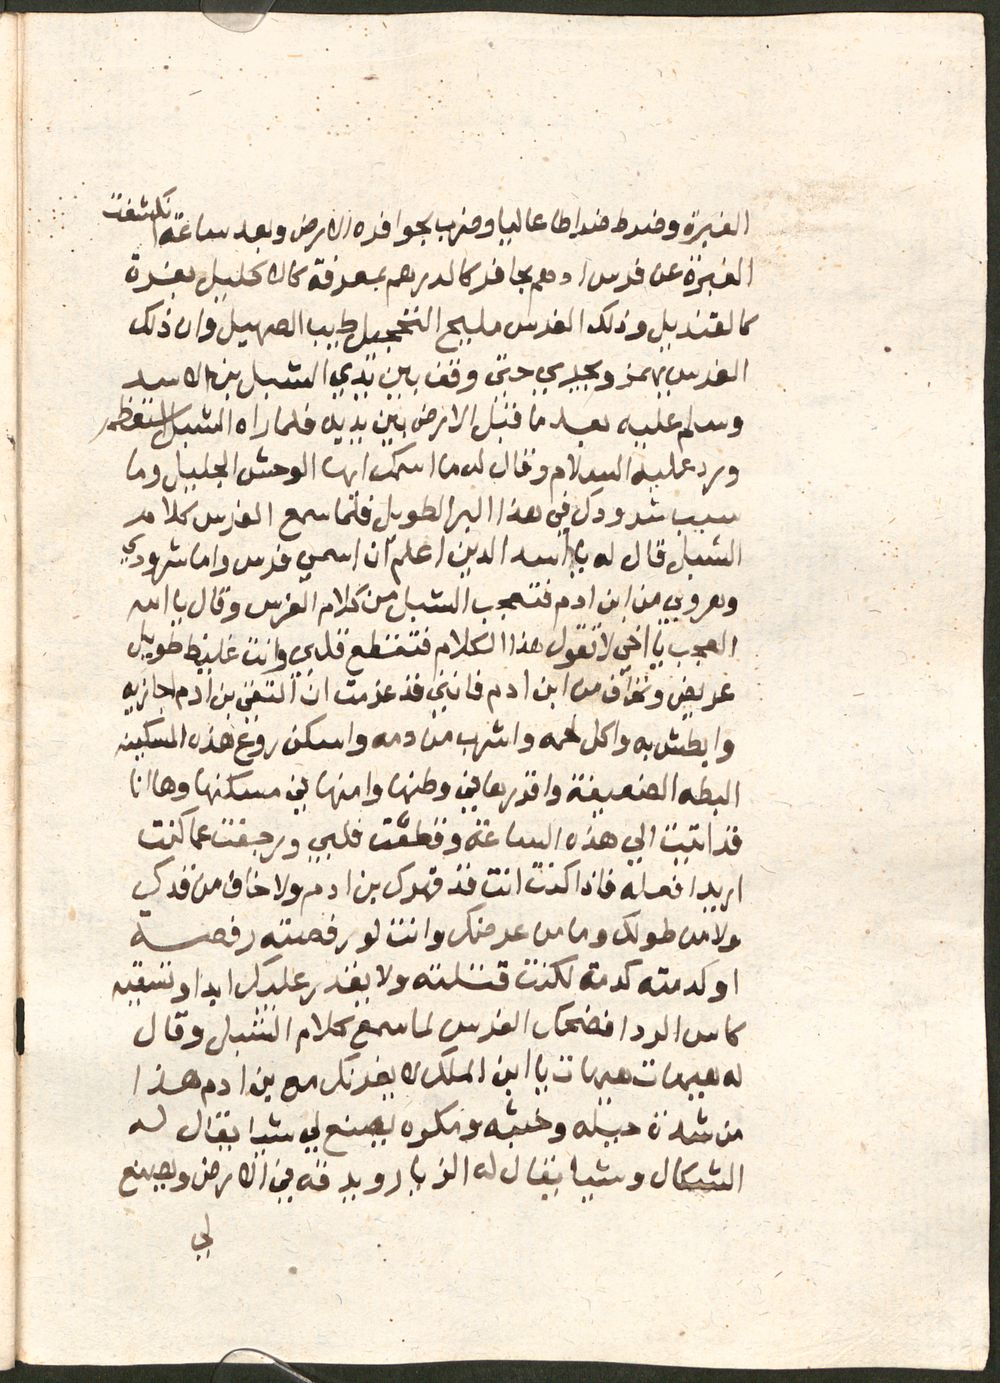 الغبرة وضرط ضراطا عاليا وضرب بحوافره الارض وبعد ساعة انكشفت
الغبرة عن فرس ادهم بحافر كالدرهم بمعرفة كالاكحليل بغرة
كالقنديل وذلك الفرس مليح التحجيل طيب الصهيل وان ذلك
الفرس يهمز ويجري حتى وقف بين يدي الشبل بن الاسد
وسلم عليه بعد ما قبل الارض بين يديه فلما راه الشبل استعظمه
ورد عليه السلام وقال له ما اسمك ايها الوحش الجليل وما
سبب شرودك في هذا البر الطويل فلما سمع الفرس كلام
الشبل قال له يا اسد الدين اعلم ان اسمي فرس واما شرودي
وهروبي من ابن ادم فتعجب الشبل من كلام الفرس وقال يا الله
العجب يا اخي لا تقول هذا الكلام فتقطع قلبي وانت غليظ طويل
عريض وتخاف من ابن ادم فانني قد عزمت ان التقي بن ادم اجازيه
وابطش به واكل لحمه واشرب من دمه واسكن روع هذه المسكينه
البطه الضعيفة واقررها في وطنها وامنها في مسكنها وها انا
قد اتيت الي هذه الساعة وقطعت قلبي ورجفت عما كنت
اريد افعله فاذا كنت انت قد قهرك بن ادم ولا خاف من قدك
ولا من طولك وما من عرضك وانت لو رفصته رفصة
او كدمته كدمة لكنت قتلته ولا يقدر عليك ابدا وتسقيه
كاس الردا فضحك الفرس لما سمع كلام الشبل وقال
له هيهات هيهات يا ابن الملك لا يغرنك مع بن ادم هذا
من شدة حيله وخبثه ومكره يصنع لي شيا يقال له
الشكال وشيا يقال له الزيار ويدقه في الارض ويصنع
لي